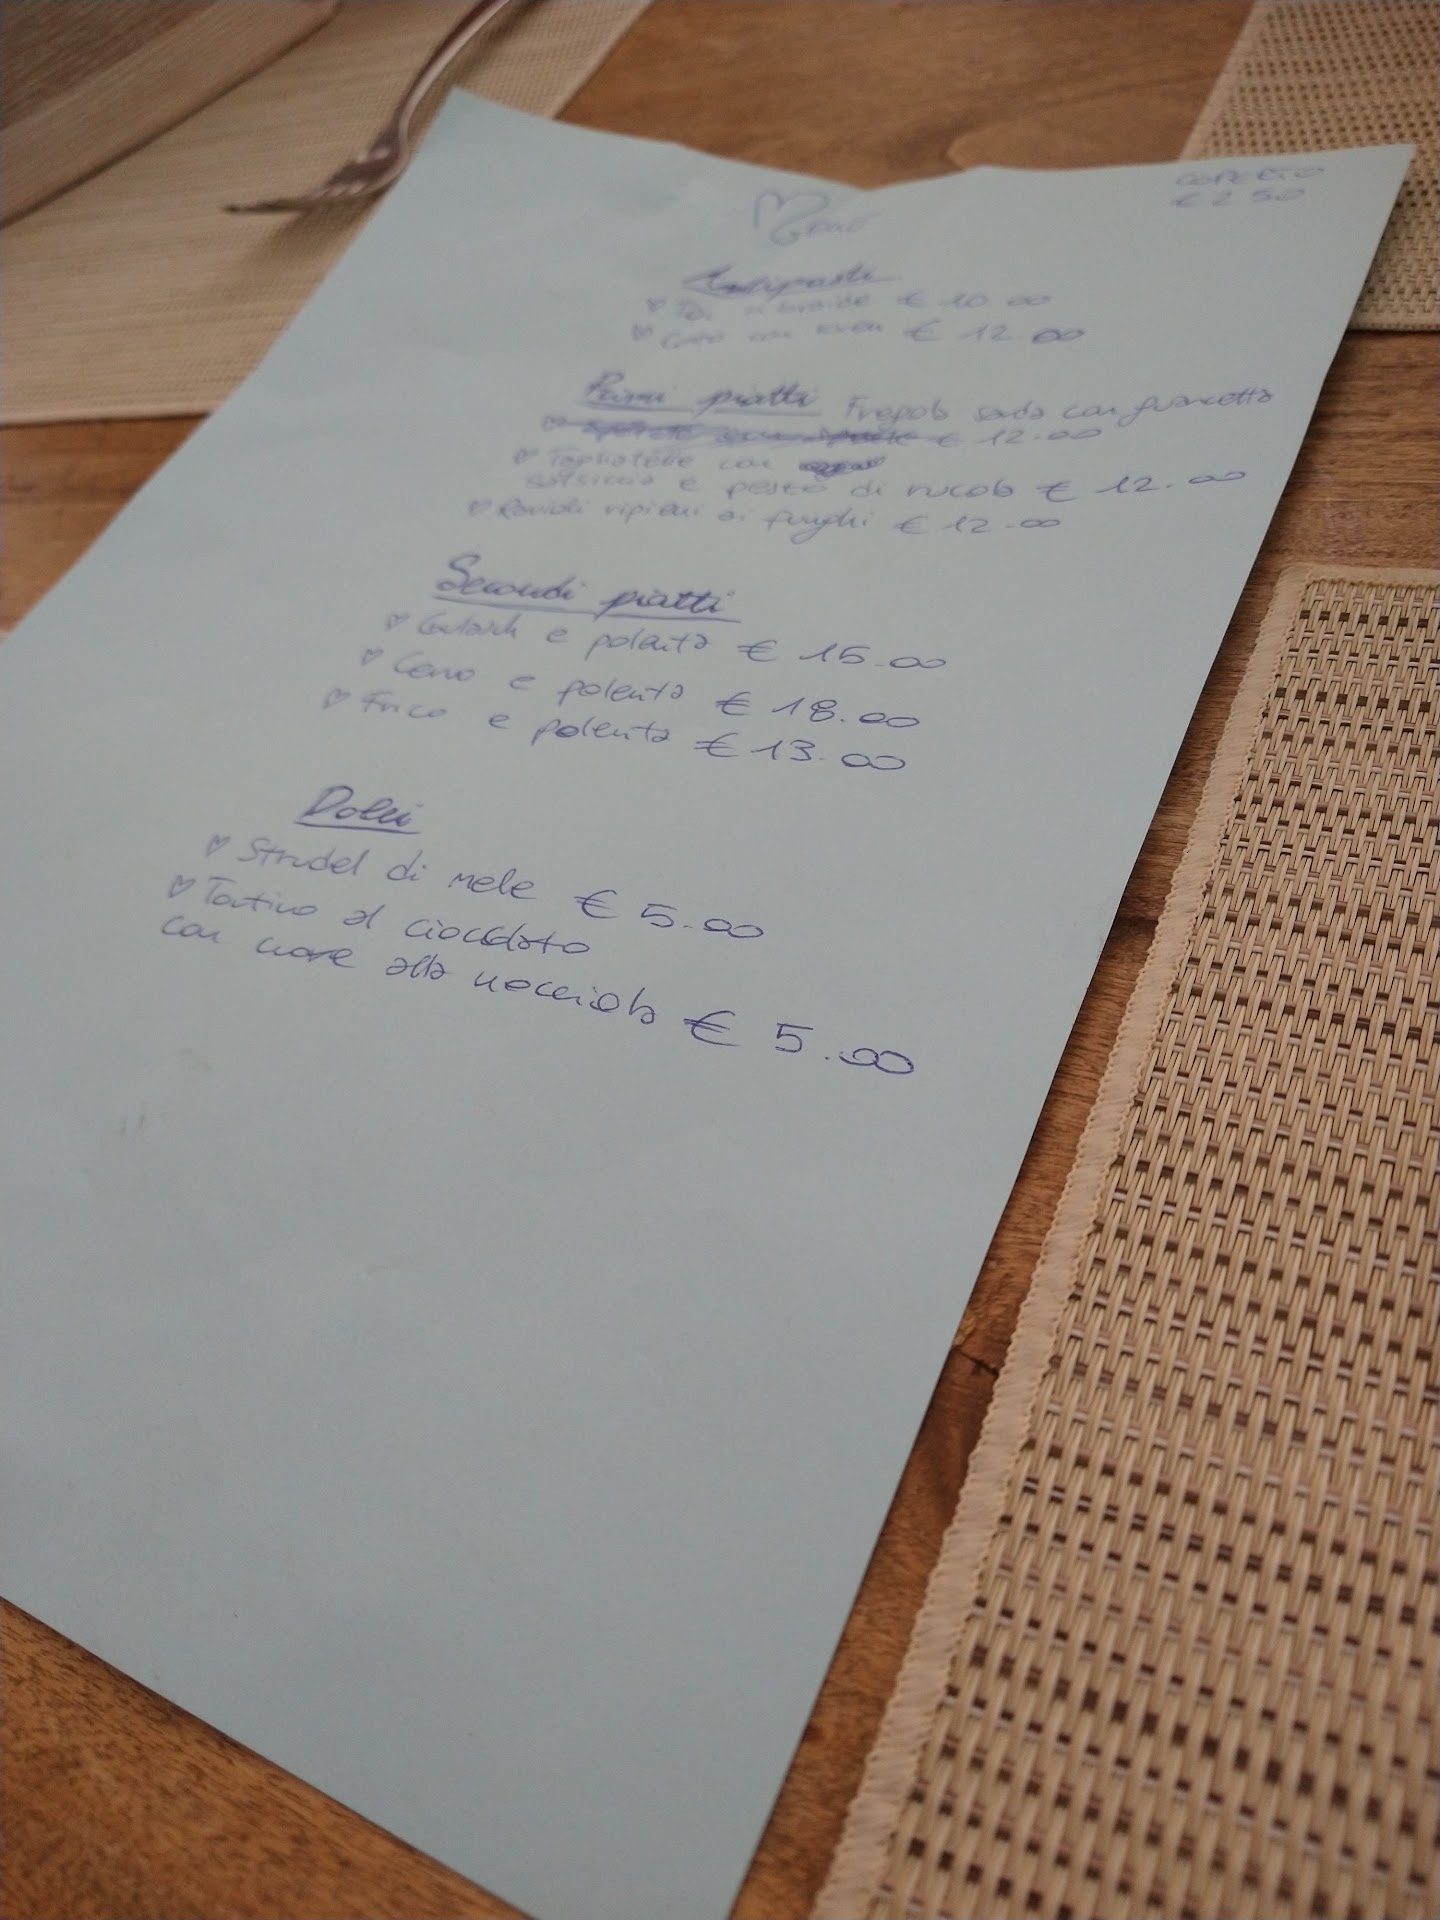 COPERTO
€ 2.50
Menù
Antipasti
€ 10.00
€ 12.00
Primi piatti Fregola sarda con guancetta
€ 12.00
Tagliatelle con
salsiccia e pesto di rucola € 12.00
Ravioli ripieni ai funghi € 12.00
Secondi piatti
Gulash e polenta € 15.00
Cervo e polenta € 18.00
Frico e polenta € 13.00
Dolci
Strudel di mele € 5.00
Tortino al cioccolato
con cuore alla nocciola € 5.00